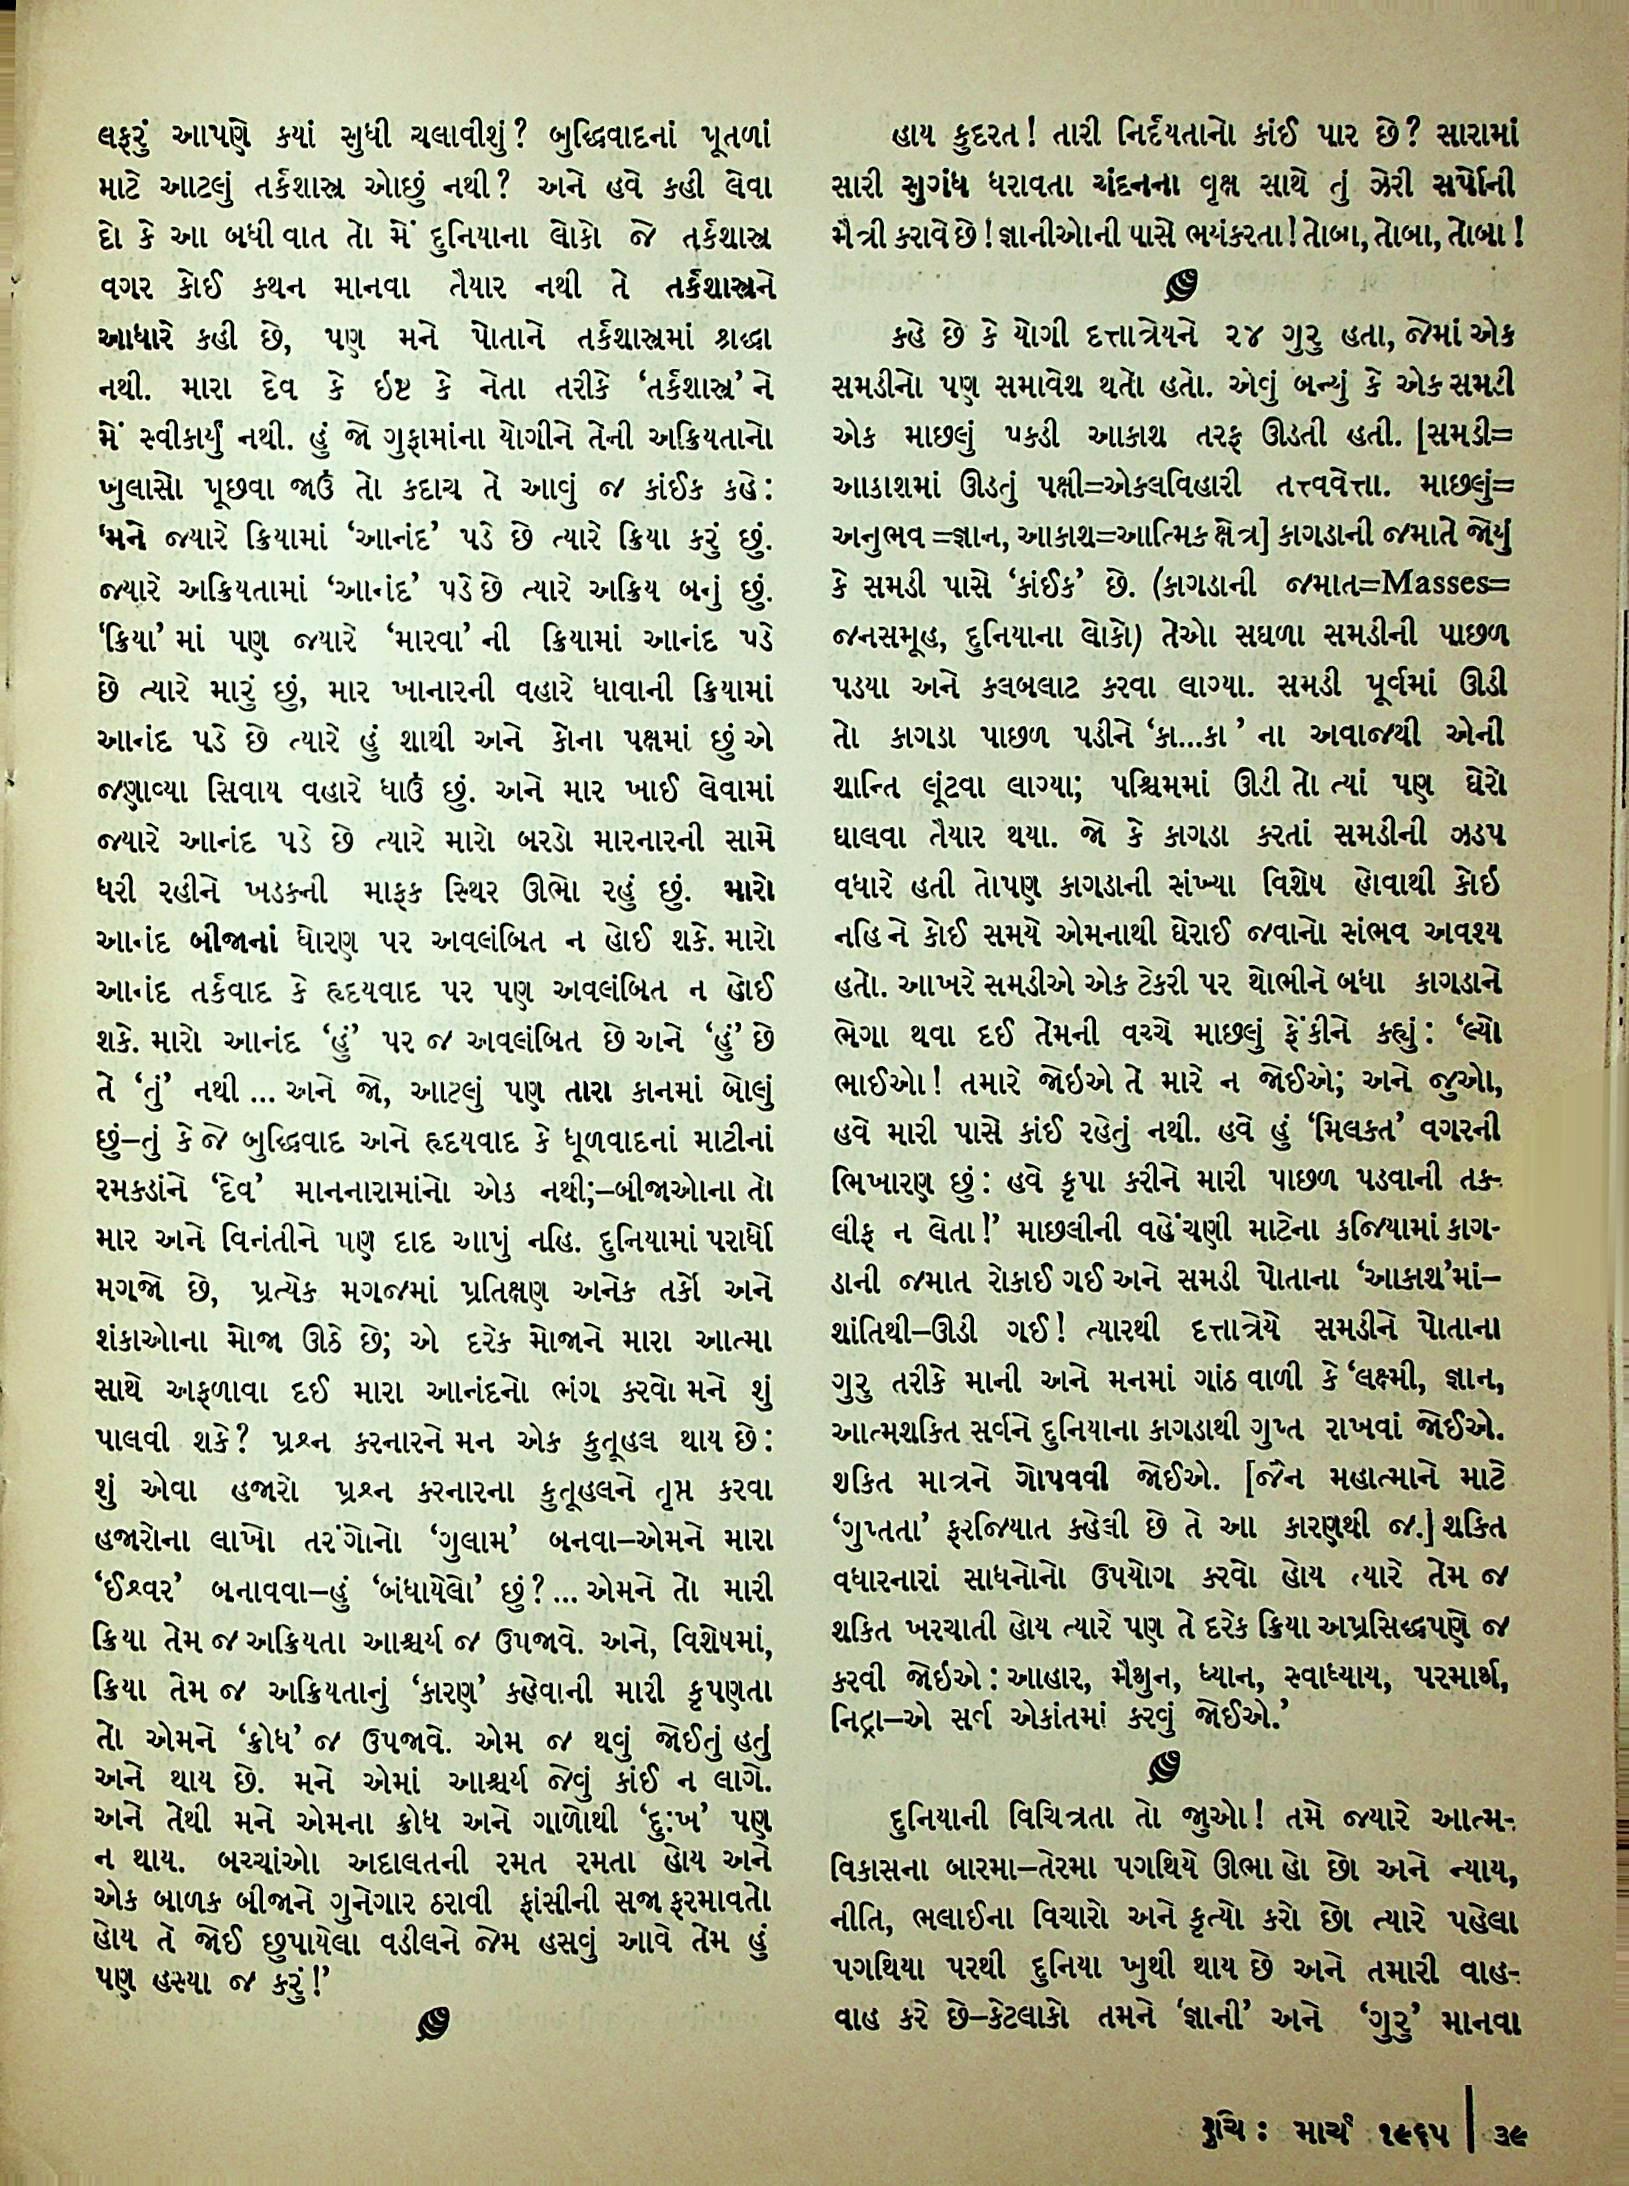 લફરું આપણે કયાં સુધી ચલાવીશું? બુદ્ધિવાદનાં પૂતળાં
માટે આટલું તર્કશાસ્ત્ર ઓછું નથી? અને હવે કહી લેવા
દો કે આ બધી વાત તો મેં દુનિયાના લોકો જે તર્કશાસ્ત્ર
વગર કોઈ કથન માનવા તૈયાર નથી તે તર્કશાસ્ત્રને
આધારે કહી છે, પણ મને પોતાને તર્કશાસ્ત્રમાં શ્રદ્ધા
નથી. મારા દેવ કે ઇષ્ટ કે નેતા તરીકે ‘તર્કશાસ્ત્ર’ ને
મેં સ્વીકાર્યું નથી. હું જો ગુફામાંના યોગીને તેની અક્રિયતાનો
ખુલાસો પૂછવા જાઉં તો કદાચ તે આવું જ કાંઈક કહે:
‘મને જયારે ક્રિયામાં ‘આનંદ’ પડે છે ત્યારે ક્રિયા કરું છું.
જ્યારે અક્રિયતામાં ‘આનંદ’ પડે છે ત્યારે અક્રિય બનું છું.
‘ક્રિયા’ માં પણ જયારે ‘મારવા’ ની ક્રિયામાં આનંદ પડે
છે ત્યારે મારું છું, માર ખાનારની વહારે ધાવાની ક્રિયામાં
આનંદ પડે છે ત્યારે હું શાથી અને કોના પક્ષમાં છું એ
જણાવ્યા સિવાય વહારે ધાઉં છું. અને માર ખાઈ લેવામાં
જયારે આનંદ પડે છે ત્યારે મારો બરડો મારનારની સામે
ધરી રહીને ખડકની માફક સ્થિર ઊભો રહું છું. મારો
આનંદ બીજાનાં ધોરણ પર અવલંબિત ન હોઈ શકે. મારો
આનંદ તર્કવાદ કે હૃદયવાદ પર પણ અવલંબિત ન હોઈ
શકે. મારો આનંદ ‘હું’ પર જ અવલંબિત છે અને ‘હું’ છે
તે ‘તું’ નથી ... અને જો, આટલું પણ તારા કાનમાં બોલું
છું–તું કે જે બુદ્ધિવાદ અને હૃદયવાદ કે ધૂળવાદનાં માટીનાં
રમકડાંને ‘દેવ’ માનનારામાંનો એક નથી;–બીજાઓના તો
માર અને વિનંતીને પણ દાદ આપું નહિ. દુનિયામાં પરાર્ધો
મગજો છે, પ્રત્યેક મગજમાં પ્રતિક્ષણ અનેક તર્કો અને
શંકાઓના મોજા ઊઠે છે; એ દરેક મોજાને મારા આત્મા
સાથે અફળાવા દઈ મારા આનંદનો ભંગ કરવો મને શું
પાલવી શકે? પ્રશ્ન કરનારને મન એક કુતૂહલ થાય છે:
શું એવા હજારો પ્રશ્ન કરનારના કુતૂહલને તૃપ્ત કરવા
હજારોના લાખો તરંગોનો ‘ગુલામ’ બનવા–એમને મારા
‘ઈશ્વર’ બનાવવા–હું ‘બંધાયેલો’ છું? ... એમને તો મારી
ક્રિયા તેમ જ અક્રિયતા આશ્ચર્ય જ ઉપજાવે. અને, વિશેષમાં,
ક્રિયા તેમ જ અક્રિયતાનું ‘કારણ’ કહેવાની મારી કૃપણતા
તો એમને ‘ક્રોધ’ જ ઉપજાવે. એમ જ થવું જોઈતું હતું
અને થાય છે. મને એમાં આશ્ચર્ય જેવું કાંઈ ન લાગે.
અને તેથી મને એમના ક્રોધ અને ગાળોથી ‘દુ:ખ’ પણ
ન થાય. બચ્ચાંઓ અદાલતની રમત રમતા હોય અને
એક બાળક બીજાને ગુનેગાર ઠરાવી ફાંસીની સજા ફરમાવતો
હોય તે જોઈ છુપાયેલા વડીલને જેમ હસવું આવે તેમ હું
પણ હસ્યા જ કરું!’
હાય કુદરત! તારી નિર્દયતાનો કાંઈ પાર છે? સારામાં
સારી સુગંધ ધરાવતા ચંદનના વૃક્ષ સાથે તું ઝેરી સર્પોની
મૈત્રી કરાવે છે! જ્ઞાનીઓની પાસે ભયંકરતા! તોબા, તોબા, તોબા!
કહે છે કે યોગી દત્તાત્રેયને ૨૪ ગુરુ હતા, જેમાં એક
સમડીનો પણ સમાવેશ થતો હતો. એવું બન્યું કે એક સમડી
એક માછલું પકડી આકાશ તરફ ઊડતી હતી. [સમડી=
આકાશમાં ઊડતું પક્ષી=એકલવિહારી તત્ત્વવેત્તા. માછલું=
અનુભવ =જ્ઞાન, આકાશ=આત્મિક ક્ષેત્ર] કાગડાની જમાતે જોયું
કે સમડી પાસે ‘કાંઈક’ છે. (કાગડાની જમાત=Masses=
જનસમૂહ, દુનિયાના લોકો) તેઓ સઘળા સમડીની પાછળ
પડયા અને કલબલાટ કરવા લાગ્યા. સમડી પૂર્વમાં ઊડી
તો કાગડા પાછળ પડીને ‘કા...કા ’ ના અવાજથી એની
શાન્તિ લૂંટવા લાગ્યા; પશ્ચિમમાં ઊડી તો ત્યાં પણ ઘેરો
ઘાલવા તૈયાર થયા. જો કે કાગડા કરતાં સમડીની ઝડપ
વધારે હતી તોપણ કાગડાની સંખ્યા વિશેષ હોવાથી કોઇ
નહિ ને કોઈ સમયે એમનાથી ઘેરાઈ જવાનો સંભવ અવશ્ય
હતો. આખરે સમડીએ એક ટેકરી પર થોભીને બધા કાગડાને
ભેગા થવા દઈ તેમની વચ્ચે માછલું ફેંકીને કહ્યું: ‘લ્યો
ભાઈઓ! તમારે જોઇએ તે મારે ન જોઈએ; અને જુઓ,
હવે મારી પાસે કાંઈ રહેતું નથી. હવે હું ‘મિલકત’ વગરની
ભિખારણ છું: હવે કૃપા કરીને મારી પાછળ પડવાની તક-
લીફ ન લેતા!’ માછલીની વહેંચણી માટેના કજિયામાં કાગ-
ડાની જમાત રોકાઈ ગઈ અને સમડી પોતાના ‘આકાશ’માં–
શાંતિથી–ઊડી ગઈ! ત્યારથી દત્તાત્રેયે સમડીને પોતાના
ગુરુ તરીકે માની અને મનમાં ગાંઠ વાળી કે ‘લક્ષ્મી, જ્ઞાન,
આત્મશકિત સર્વને દુનિયાના કાગડાથી ગુપ્ત રાખવાં જોઈએ.
શકિત માત્રને ગોપવવી જોઈએ. [જૈન મહાત્માને માટે
‘ગુપ્તતા’ ફરજિયાત કહેલી છે તે આ કારણથી જ.] શકિત
વધારનારાં સાધનોનો ઉપયોગ કરવો હોય ત્યારે તેમ જ
શકિત ખરચાતી હોય ત્યારે પણ તે દરેક ક્રિયા અપ્રસિદ્ધપણે જ
કરવી જોઇએ: આહાર, મૈથુન, ધ્યાન, સ્વાધ્યાય, પરમાર્થ,
નિદ્રા–એ સર્વ એકાંતમાં કરવું જોઈએ.’
દુનિયાની વિચિત્રતા તો જુઓ! તમે જયારે આત્મ-
વિકાસના બારમા–તેરમા પગથિયે ઊભા હો છો અને ન્યાય,
નીતિ, ભલાઈના વિચારો અને કૃત્યો કરો છો ત્યારે પહેલા
પગથિયા પરથી દુનિયા ખુથી થાય છે અને તમારી વાહ-
વાહ કરે છે–કેટલાકો તમને ‘જ્ઞાની’ અને ‘ગુરુ’ માનવા
રુચિ: માર્ચ ૧૯૬૫ | ૩૯